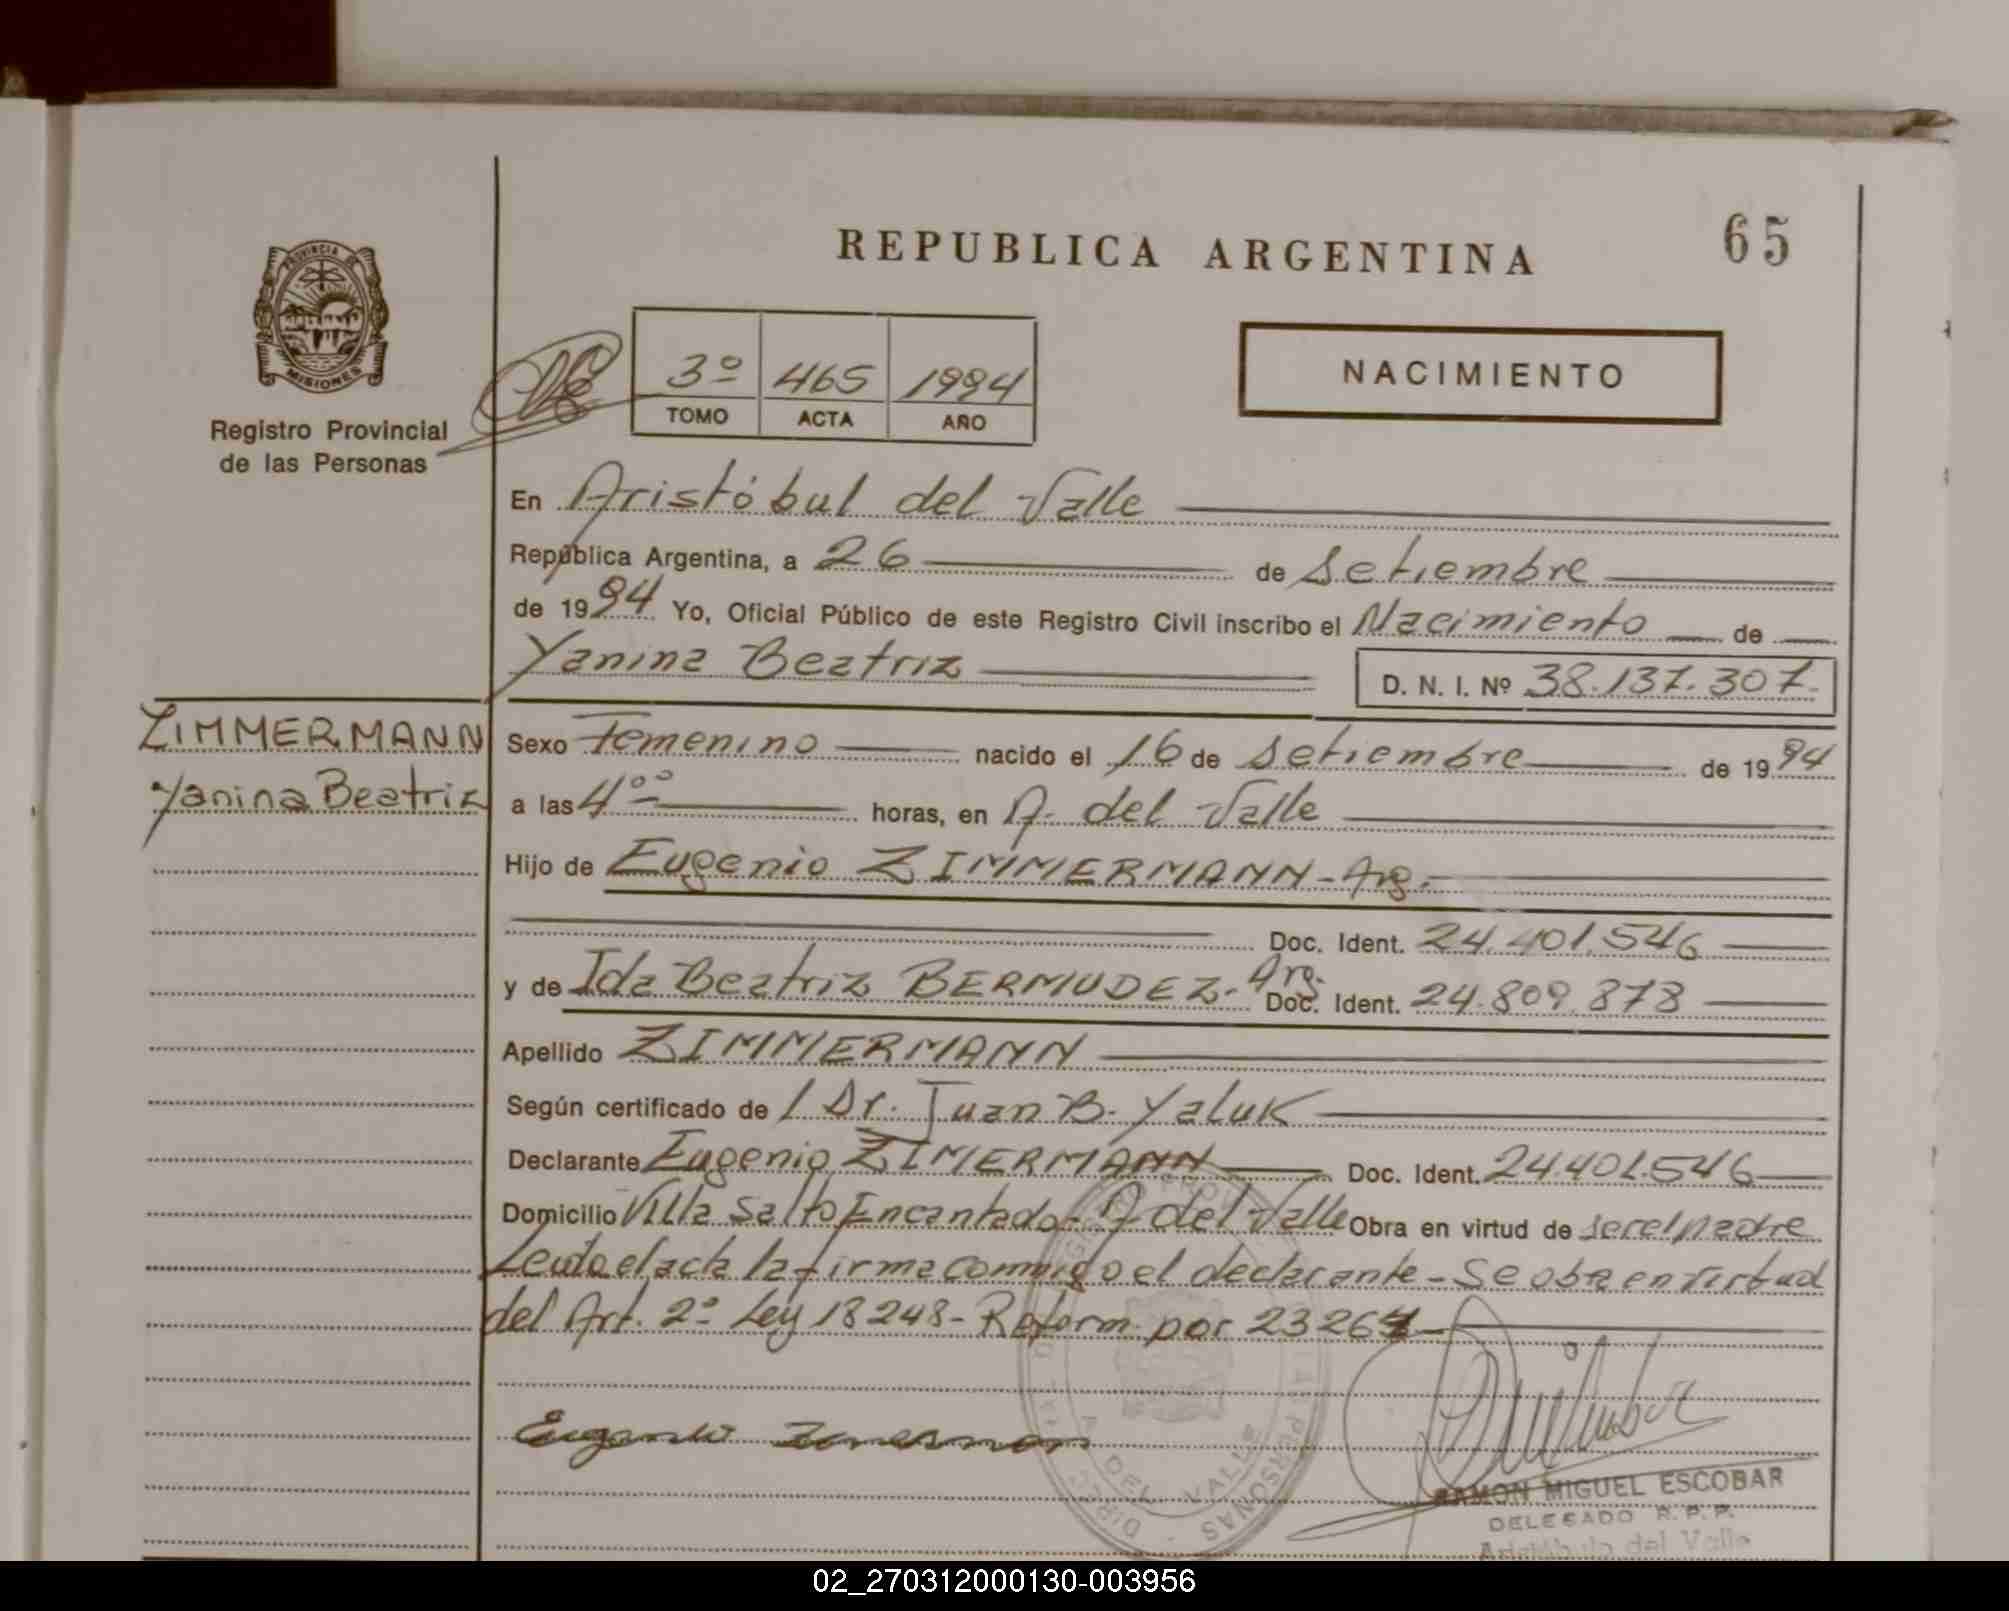 REPUBLICA ARGENTINA
65
PROVINCIA DE
MISIONES
Registro Provincial
de las Personas
3º 465 1994
TOMO ACTA AÑO
NACIMIENTO
En Aristóbul del Valle
República Argentina, a 26 de Setiembre
de 1994 Yo, Oficial Público de este Registro Civil inscribo el Nacimiento de
Yanina Beatriz D. N. I. Nº 38.137.307.
ZIMMERMANN
Yanina Beatriz
Sexo Femenino nacido el 16 de Setiembre de 1994
a las 4ºº horas, en A. del Valle
Hijo de Eugenio ZIMMERMANN - Arg.
Doc. Ident. 24.401.546
y de Ida Beatriz BERMUDEZ - Arg. Doc. Ident. 24.809.878
Apellido ZIMMERMANN
Según certificado de / Dr. Juan B. Yaluk
Declarante Eugenio ZIMERMANN Doc. Ident. 24.401.546
Domicilio Villa Salto Encantado - A. del Valle Obra en virtud de ser el padre
Leída el acta la firma conmigo el declarante - Se obra en virtud
del Art. 2º Ley 18248 - Reform. por 23264
RAMON MIGUEL ESCOBAR
DELEGADO R. P. P.
Aristóbulo del Valle
A. DEL VALLE
02_270312000130-003956